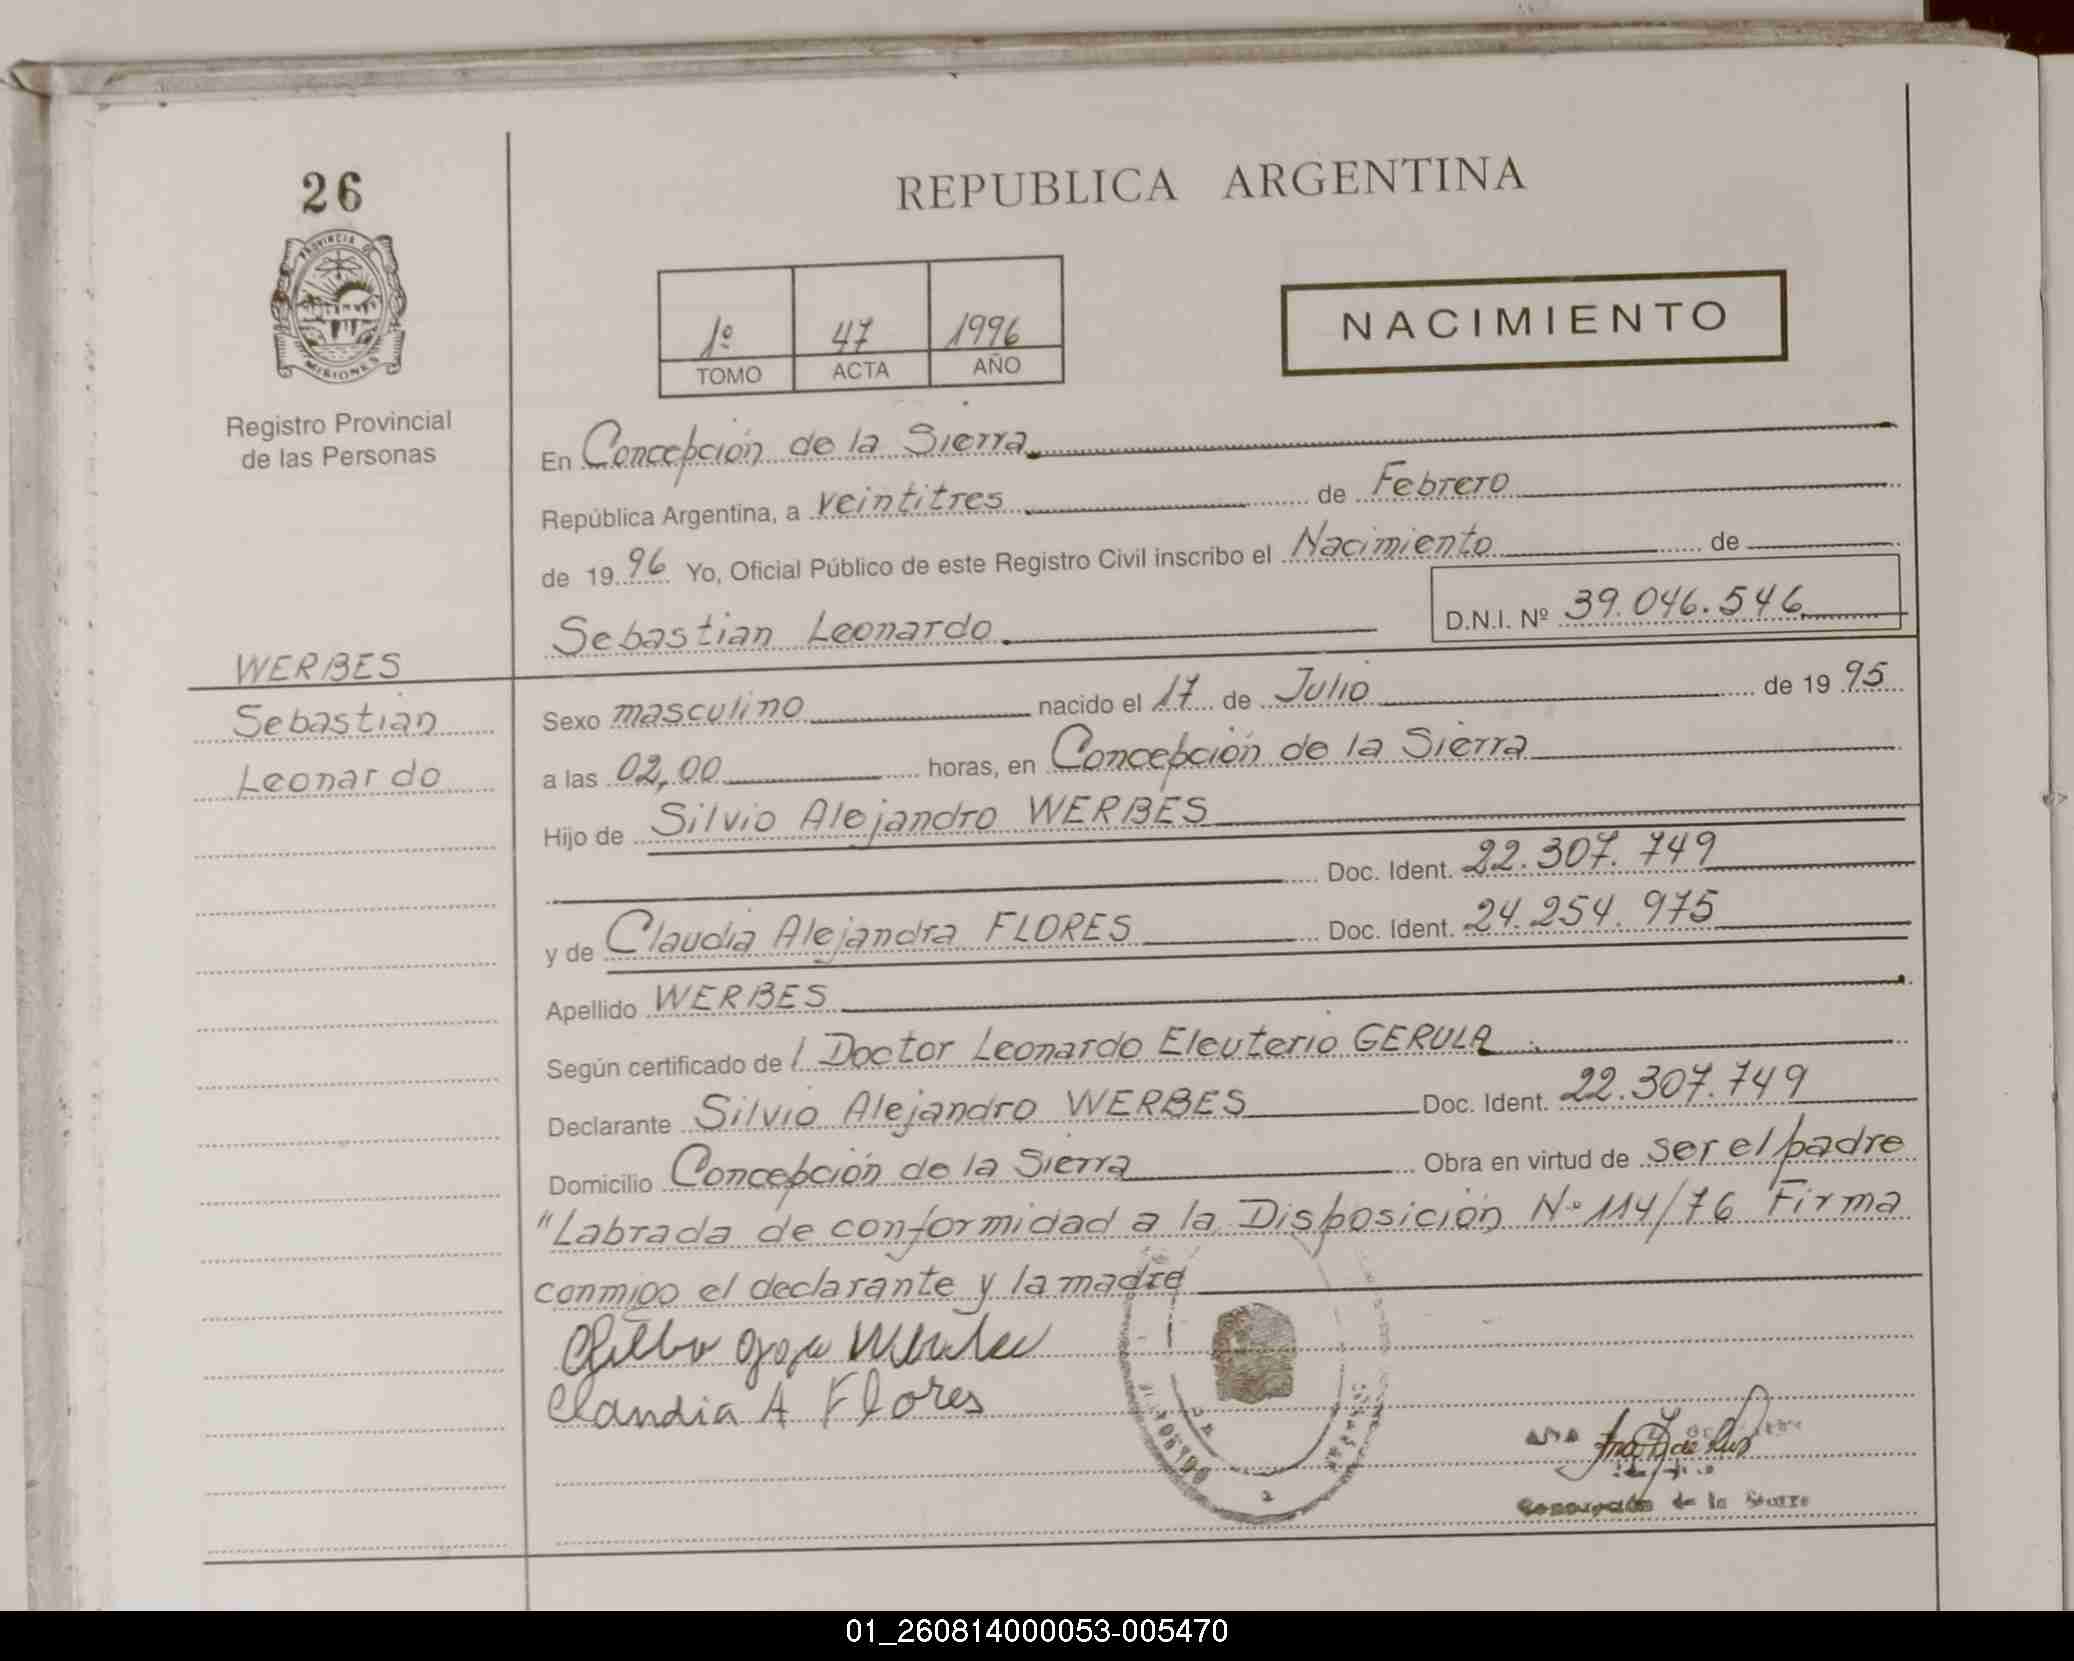 26
PROVINCIA D
MISIONES
Registro Provincial
de las Personas
REPUBLICA ARGENTINA
1º 47 1996
TOMO ACTA AÑO
NACIMIENTO
En Concepción de la Sierra
República Argentina, a veintitres de Febrero
de 19 96 Yo, Oficial Público de este Registro Civil inscribo el Nacimiento de
Sebastian Leonardo D.N.I. Nº 39.046.546
WERBES
Sebastian
Leonardo
Sexo masculino nacido el 17 de Julio de 19 95
a las 02,00 horas, en Concepción de la Sierra
Hijo de Silvio Alejandro WERBES
Doc. Ident. 22.307.749
y de Claudia Alejandra FLORES Doc. Ident. 24.254.975
Apellido WERBES
Según certificado de l Doctor Leonardo Eleuterio GERULA
Declarante Silvio Alejandro WERBES Doc. Ident. 22.307.749
Domicilio Concepción de la Sierra Obra en virtud de ser el padre
"Labrada de conformidad a la Disposición Nº 114/76 Firma
conmigo el declarante y la madre
Claudia A Flores
de la Sierra
01_260814000053-005470